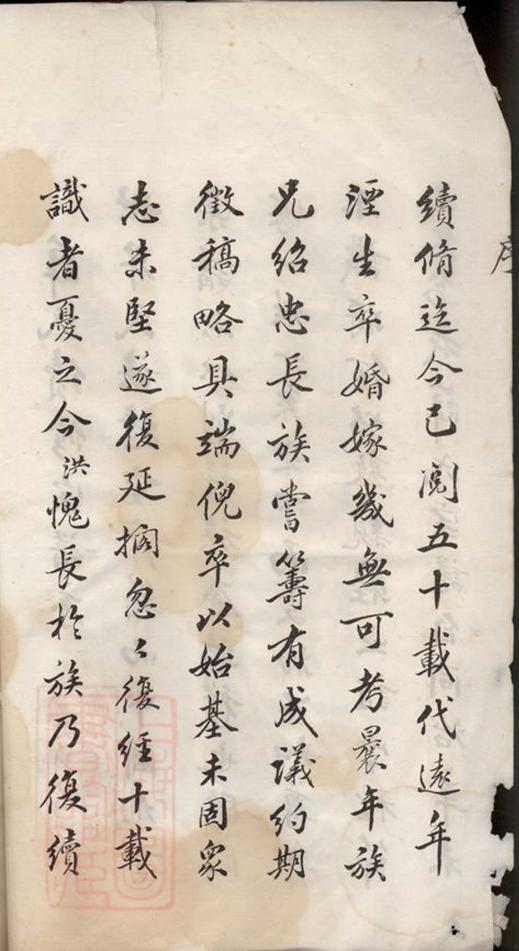 序
續脩迄今已閱五十載代遠年
湮生卒婚嫁幾無可考曩年族
兄紹忠長族嘗籌有成議約期
徵稿略具端倪卒以始基未固眾
志未堅遂復延擱忽々復經十載
識者憂之今洪愧長於族乃復續